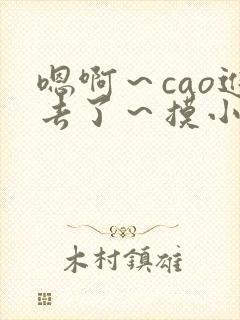 嗯啊~cao进
去了~摸小
木村鎮雄